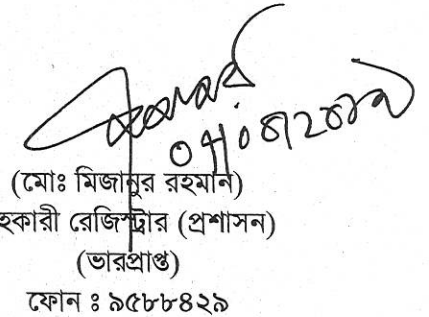 (মোঃ মিজানুর রহমান)
হকারী রেজিস্ট্রার (প্রশাসন)
(ভারপ্রাপ্ত)
ফোন ঃ ৯৫৮৮৪২৯